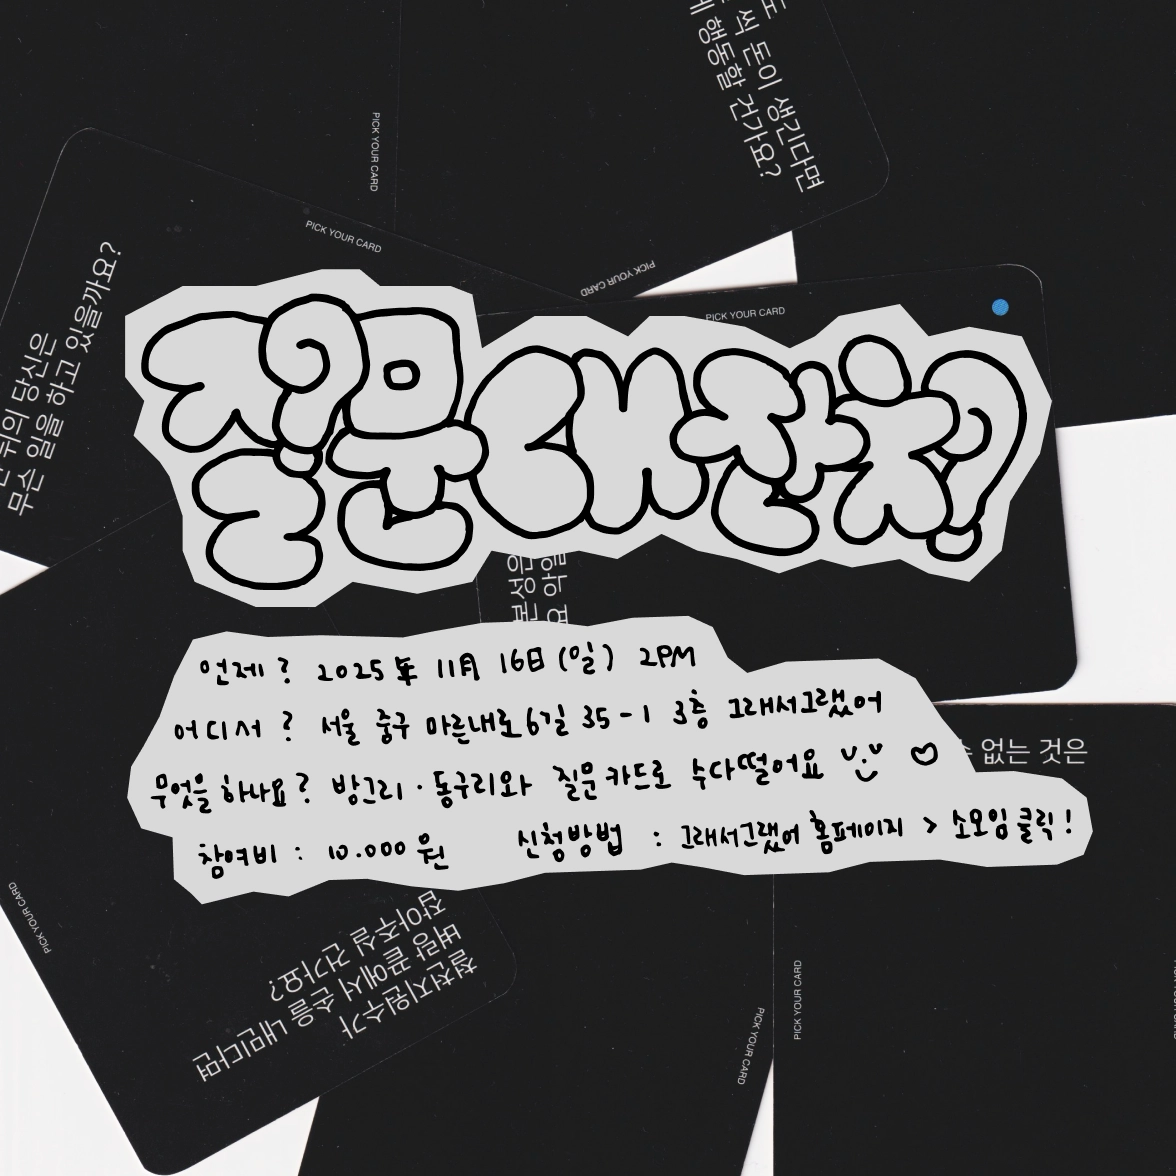 썩 돈이 생긴다면
게 행동할 건가요?
PICK YOUR CARD
PICK YOUR CARD
PICK YOUR CARD
PICK YOUR CARD
뒤의 당신은
무슨 일을 하고 있을까요?
질문대잔치
언제? 2025年 11月 16日 (일) 2PM
어디서? 서울 중구 마른내로6길 35-1 3층 그래서그랬어
수 없는 것은
무엇을 하나요? 방그리·동구리와 질문카드로 수다떨어요
참여비 : 10.000원 신청방법 : 그래서그랬어 홈페이지 > 소모임 클릭!
PICK YOUR CARD
철천지원수가
벼랑 끝에서 손을 내민다면
잡아주실 건가요?
PICK YOUR CARD
PICK YOUR CARD